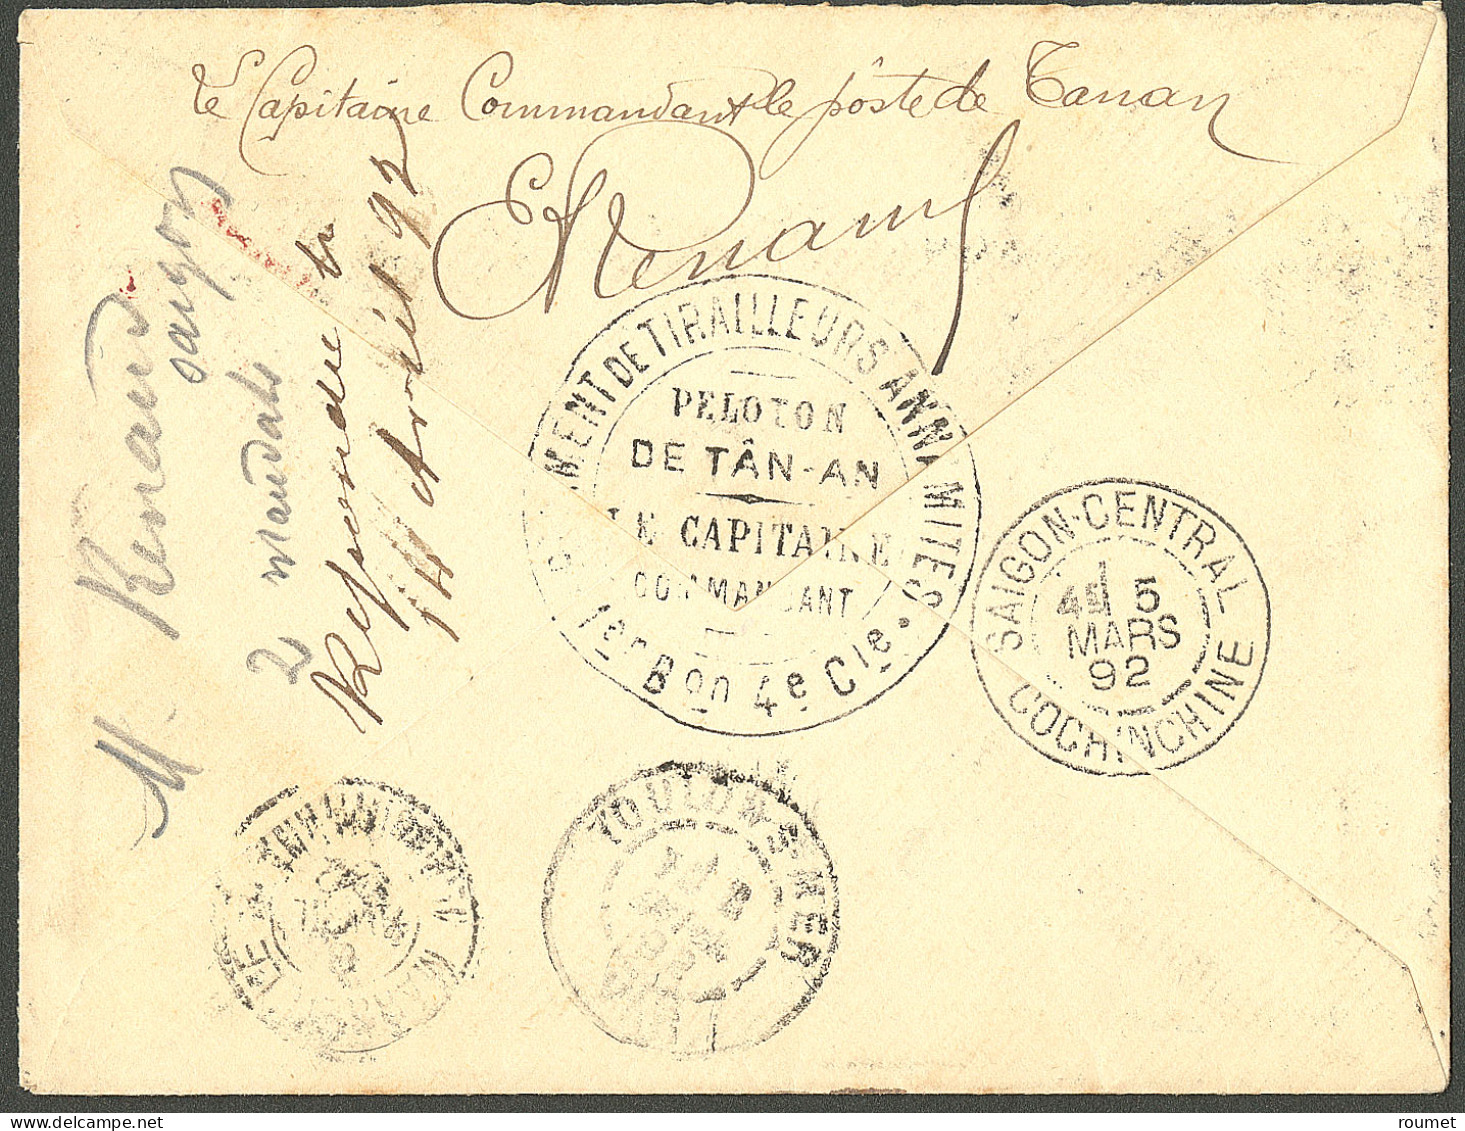 Le Capitaine Commandant le pôste de Tanan
Renaud
M. Renaud
saigon
2 mandats
Répondu le
14 Avril 92
MENT DE TIRAILLEURS ANNAMITES
PELOTON
DE TÂN-AN
LE CAPITAINE
COMMANDANT
1er Bon 4e Cie.
SAIGON-CENTRAL
5
MARS
92
COCHINCHINE
TOULON-S-MER
roumet - delcampe.net